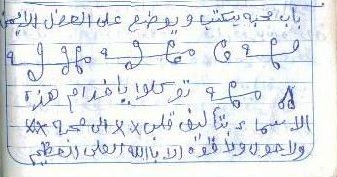 باب محبة يكتب ويوضع على العضد الأيمن
توكلوا يا خدام هذه
الاسماء بتأليف قلب xx الى محبة xx
ولا حول ولا قوة الا بالله العلى العظيم